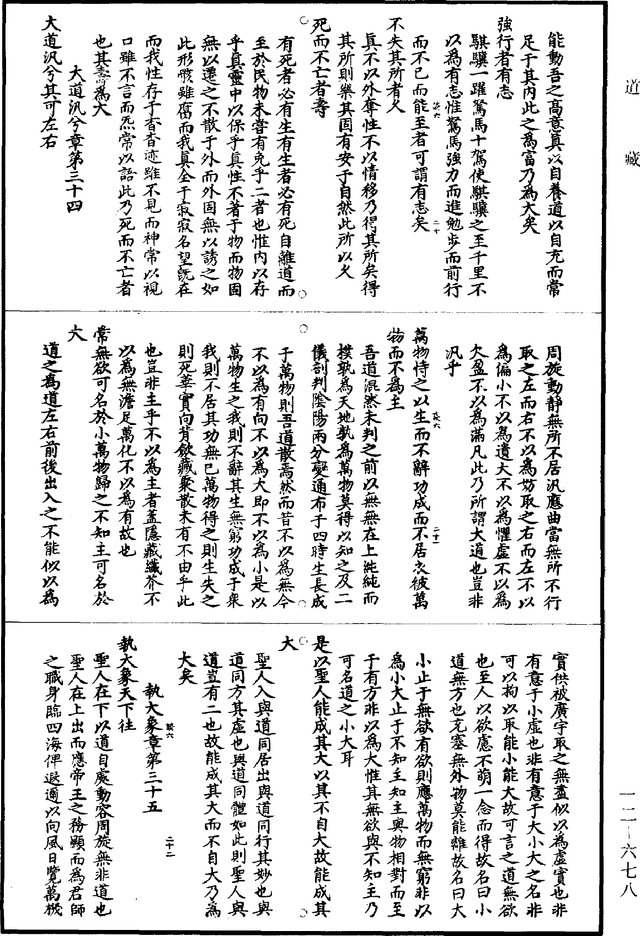 道藏
能動吾之高意真以自養道以自充而常
足于其內此之為富乃為大矣
強行者有志
騏驥一躍駑馬十駕使騏驥之至千里不
以為有志惟駑馬強力而進勉步而前行
而不已而能至者可謂有志矣
不失其所者久
真不以外奪性不以情移乃得其所矣得
其所則樂其固有安于自然此所以久
死而不亡者壽
有死者必有生有生者必有死自離道而
至於民物未嘗有免乎二者也惟內以存
乎真靈中以保乎真性不著于物而物固
無以遷之不散于外而外固無以誘之如
此形骸雖腐而我真全于寂寂名望既在
而我性存于杳杳迹雖不見而神常以視
口雖不言而炁常以語此乃死而不亡者
也其壽為大
大道汎兮章第三十四
大道汎兮其可左右
周旋動靜無所不居汎應曲當無所不行
取之左而右不以為妨取之右而左不以
為偏小不以為遺大不以為懼虛不以為
欠盈不以為滿凡此乃所謂大道也豈非
汎乎
萬物恃之以生而不辭功成而不居衣被萬
物而不為主
吾道混然未判之前以無無在上純純而
樸孰為天地孰為萬物莫得以知之及二
儀剖判陰陽兩分變通布于四時生長成
于萬物則吾道散焉然而昔不以為無今
不以為有向不以為大即不以為小是以
萬物生之我則不辭其生無窮功成于衆
我則不居其功無已萬物得之則生失之
則死華實向背飲藏聚散未有不由乎此
也豈非主乎不以為主者蓋隱藏纖芥不
以為無澹足萬化不以為有故也
常無欲可名於小萬物歸之不知主可名於
大
道之為道左右前後出入之不能似以為
實供被廣宇取之無盡似以為虛實也非
有意于小虛也非有意于大小大之名非
可以拘以取能小能大故可言之道無欲
也至人以欲應不萌一念而得故名曰小
道無方也充塞無外物莫能離故名曰大
小止于無欲有欲則應萬物而無窮非以
為小大止于不知主知主與物相對而至
于有方非以為大惟其無欲與不知主乃
可名道之小大耳
是以聖人能成其大以其不自大故能成其
大
聖人入與道同居出與道同行其妙也與
道同方其虛也與道同體如此則聖人與
道豈有二也故能成其大而不自大乃為
大矣
執大象章第三十五
執大象天下往
聖人在下以道自處動容周旋無非道也
聖人在上出而應帝王之務顯而為君師
之職身臨四海俾遐邇以向風日覽萬機
一二—六七八